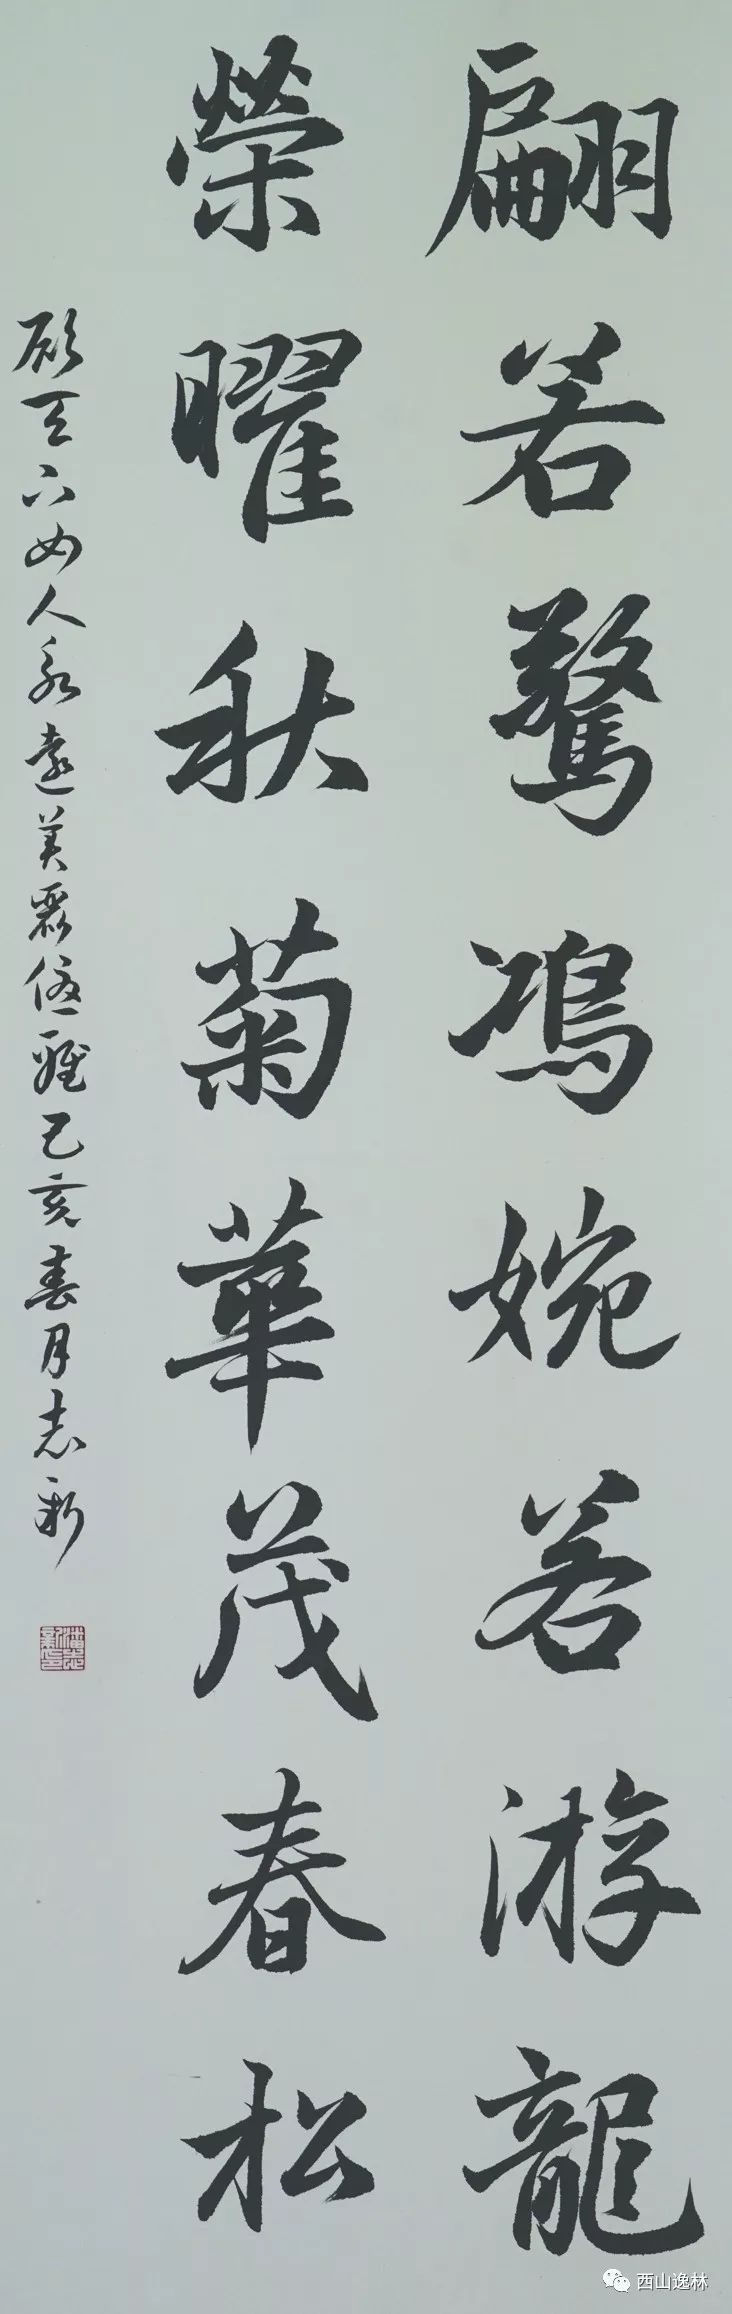 翩若驚鴻婉若游龍
榮曜秋菊華茂春松
願天下女人永遠美麗優雅己亥春月志新
潘志新印
西山逸林